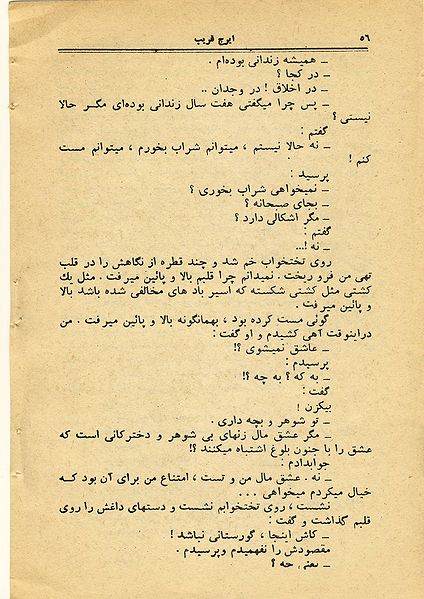 ۵۶
ایرج قریب
ـ همیشه زندانی بوده‌ام .
ـ در کجا ؟
ـ در اخلاق ! در وجدان ..
ـ پس چرا میگفتی هفت سال زندانی بوده‌ای مگـر حالا
نیستی ؟
گفتم :
ـ نه حالا نیستم ، میتوانم شراب بخورم ، میتوانم مست
کنم !
پرسید :
ـ نمیخواهی شراب بخوری ؟
ـ بجای صبحانه ؟
ـ مگر اشکالی دارد ؟
گفتم :
ـ نه !...
روی تختخواب خم شد و چند قطره از نگاهش را در قلب
تهی من فرو ریخت . نمیدانم چرا قلبم بالا و پائین میرفت . مثل یك
کشتی مثل کشتی شکسته که اسیر باد های مخالفی شده باشد بالا
و پائین میرفت .
گوئی مست کرده بود ، بهمانگونه بالا و پائین میرفت . من
دراینوقت آهی کشیدم و او گفت :
ـ عاشق نمیشوی ؟!
پرسیدم :
ـ به که ؟ به چه ؟!
گفت :
بیکزن !
ـ تو شوهر و بچه داری .
ـ مگر عشق مال زنهای بی شوهر و دخترکانی است که
عشق را با جنون بلوغ اشتباه میکنند ؟!
جوابدادم :
ـ نه . عشق مال من و تست ، امتناع من برای آن بود کـه
خیال میکردم میخواهی ...
نشست ، روی تختخوابم نشست و دستهای داغش را روی
قلبم گذاشت و گفت :
ـ کاش اینجا ، گورستانی نباشد !
مقصودش را نفهمیدم وپرسیدم .
ـ یعنی چه ؟